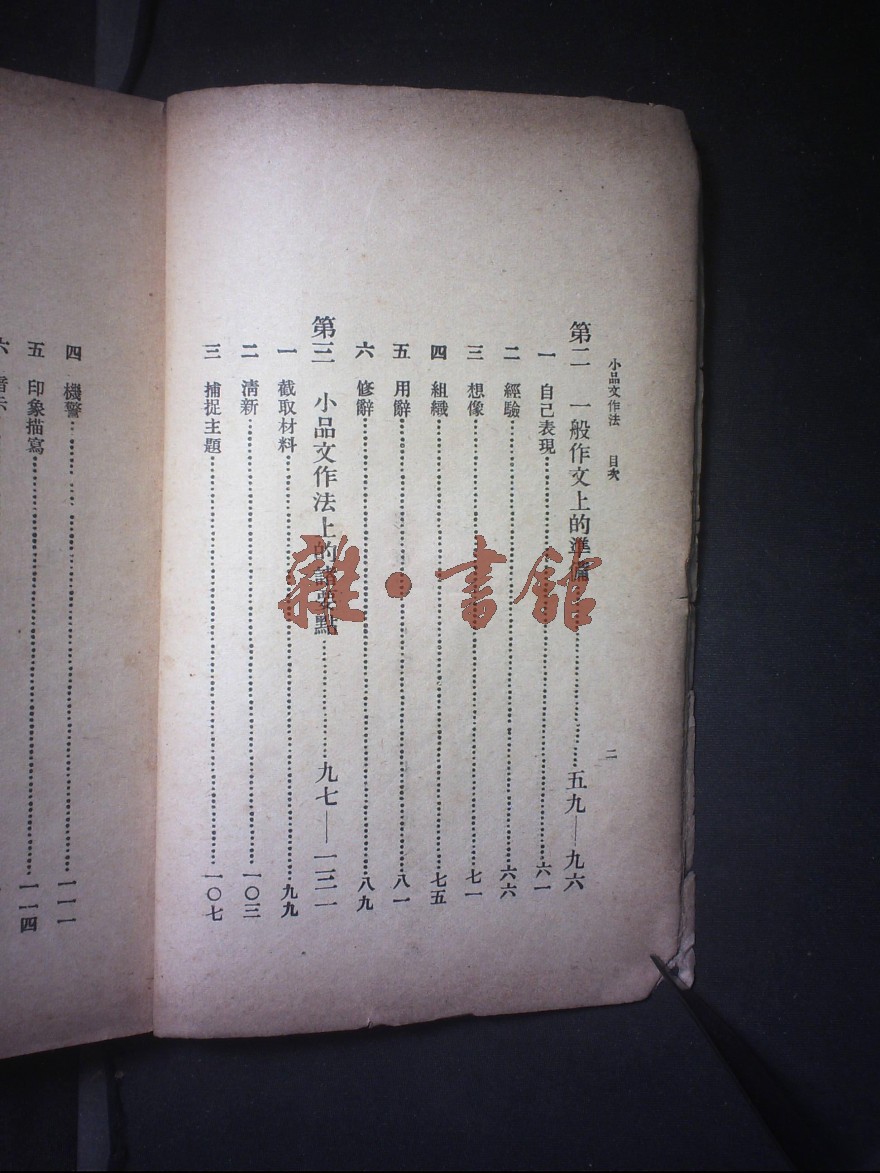 小品文作法 目次 二
第二 一般作文上的準備……五九—九六
一 自己表現……六一
二 經驗……六六
三 想像……七一
四 組織……七五
五 用辭……八一
六 修辭……八九
第三 小品文作法上的諸要點……九七—一三一
一 截取材料……九九
二 清新……一〇三
三 捕捉主題……一〇七
四 機警……一一一
五 印象描寫……一一四
六
雜·書館